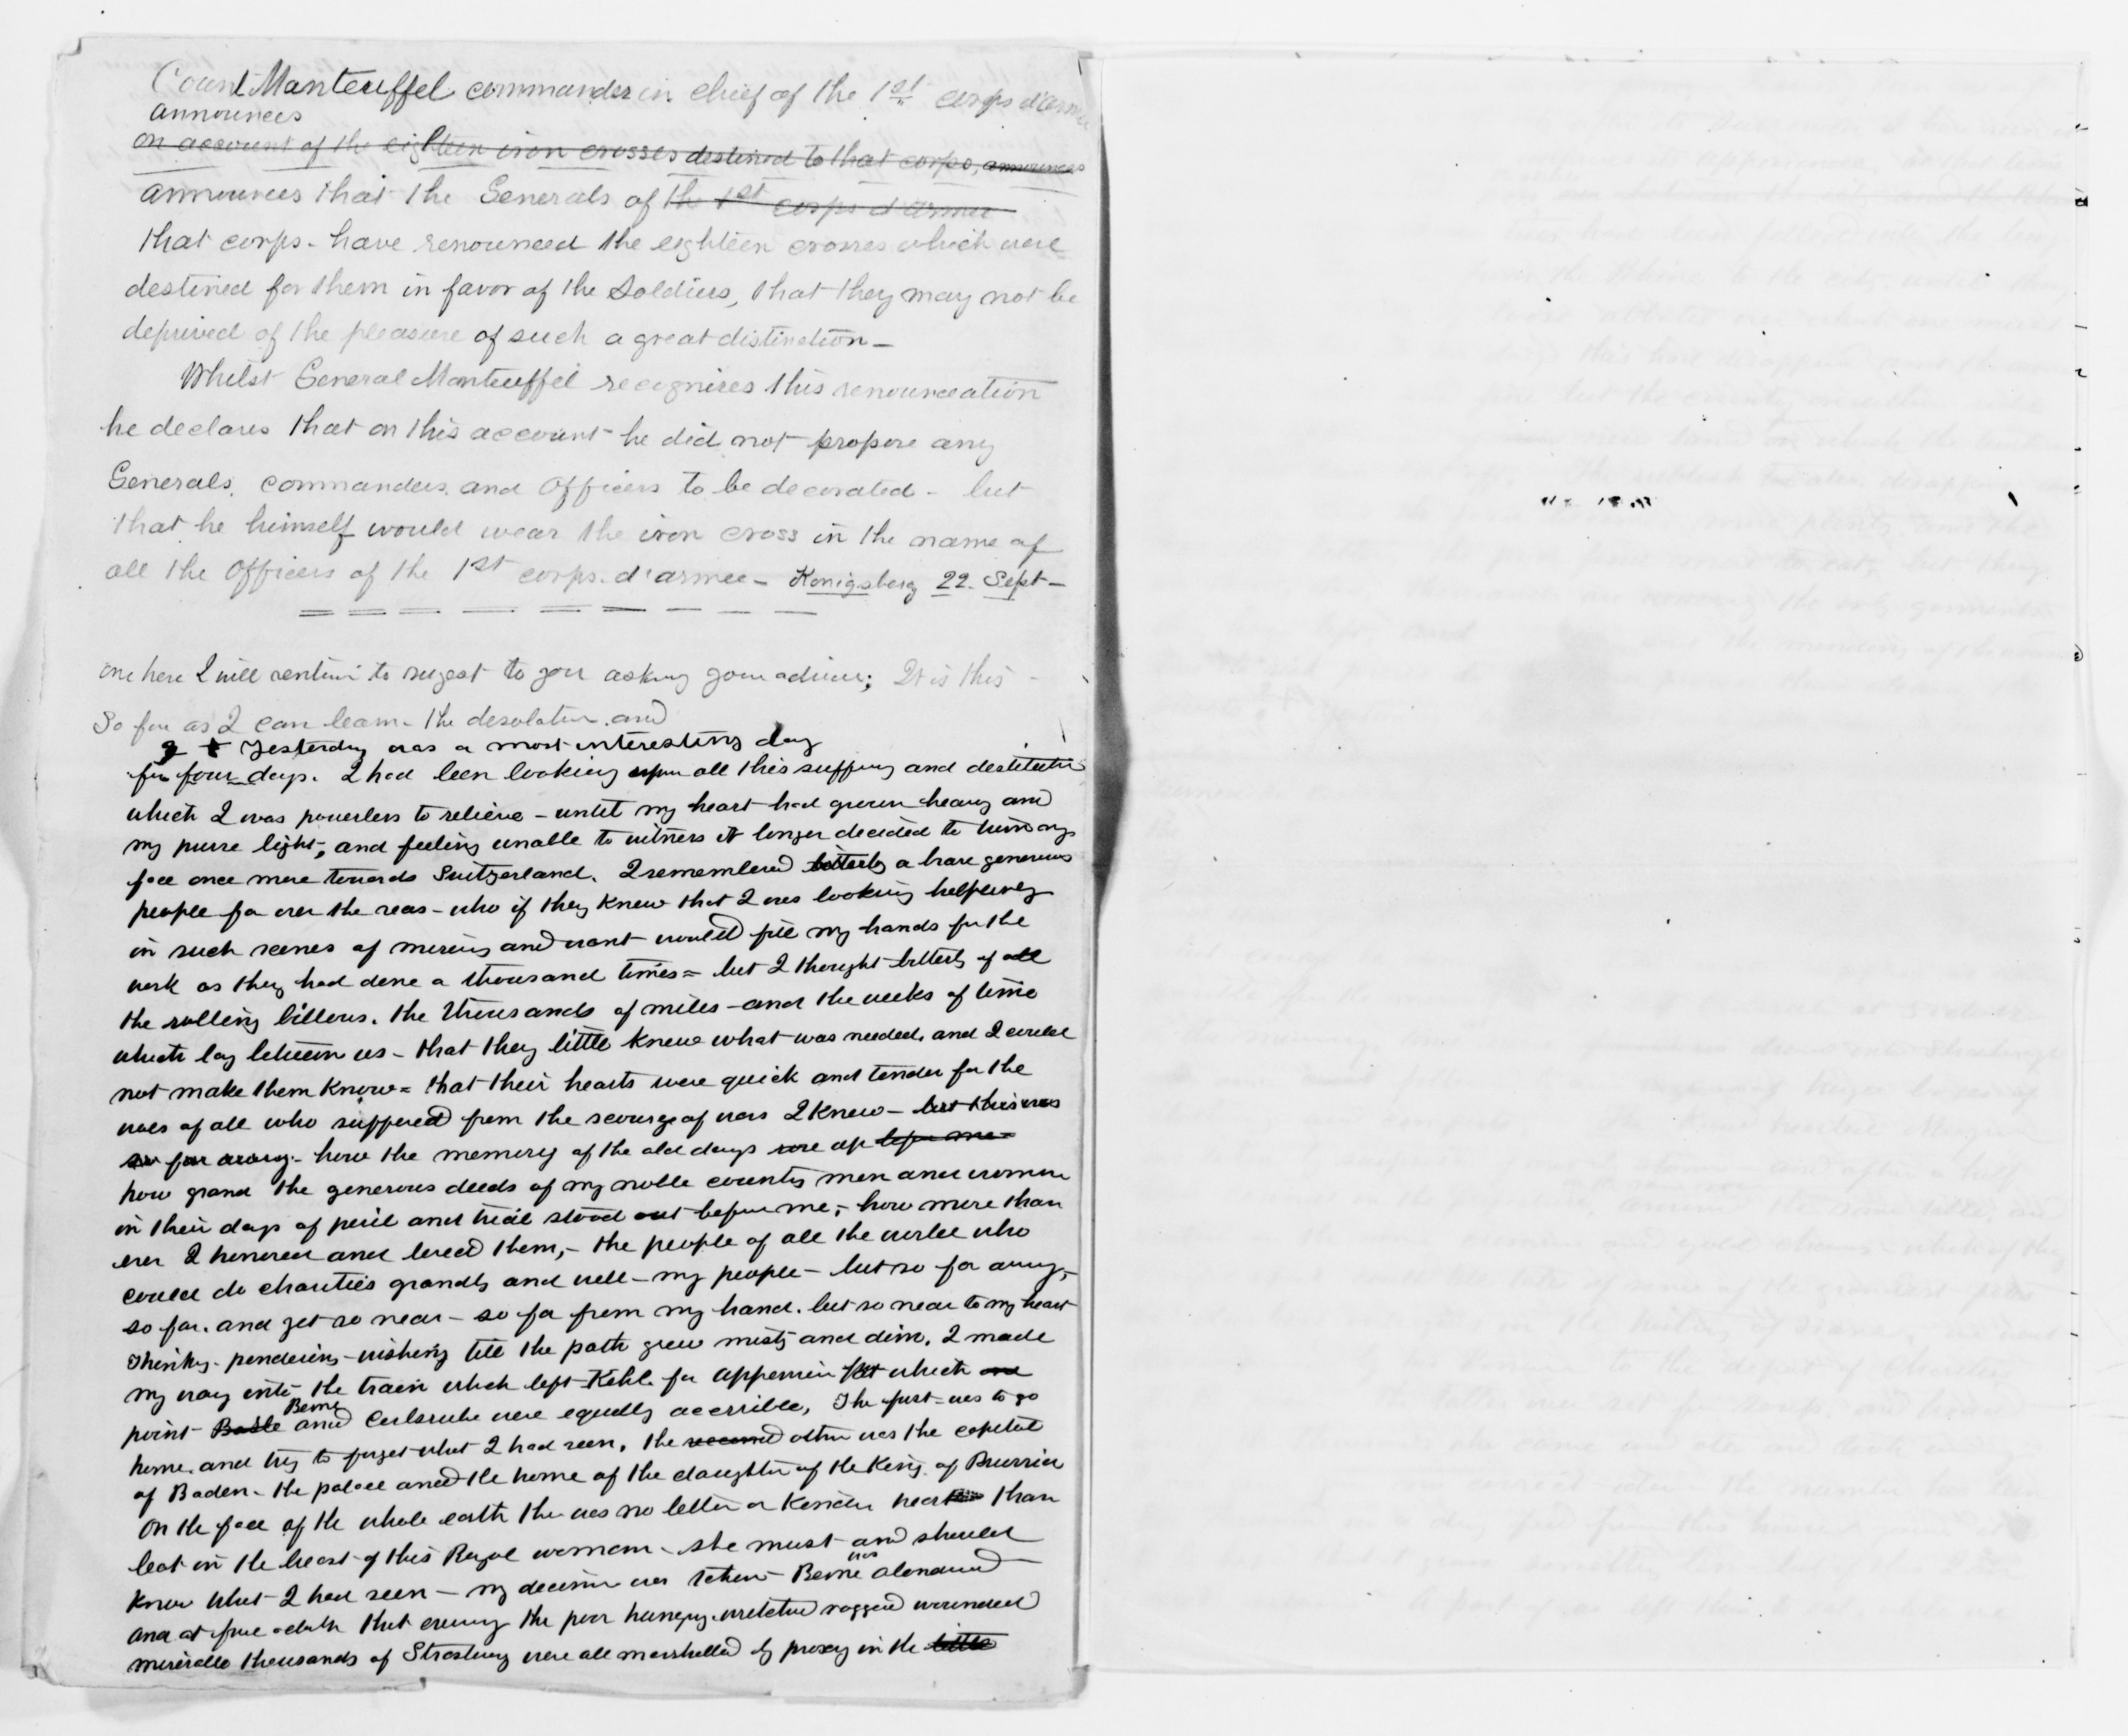 Count Manteuffel commander in chief of the 1st corps d'armee
announces
on account of the eighteen iron crosses destined to that corps, announces
announces that the Generals of the 1st corps d'armee
that corps - have renounced the eighteen crosses which were
destined for them in favor of the Soldiers, that they may not be
deprived of the pleasure of such a great distinction -
Whilst General Manteuffel recognises this renounceation
he declares that on this account he did not propose any
Generals, commanders, and Officers to be decorated - but
that he himself would wear the iron cross in the name of
all the Officers of the 1st corps. d'armee - Konigsberg 22. Sept -
one here I will venture to sugest to you asking your advice; It is this -
So far as I can learn - the desolation. and
Yesterday was a most interesting day
for four days. I had been looking upon all this suffering and destitution
which I was powerless to relieve - until my heart had grown heavy and
my purse light, and feeling unable to witness it longer decided to turn my
face once more towards Switzerland. I remembered bitterly a brave generous
people far over the seas - who if they knew that I was looking helplessly
in such scenes of misery and want would fill my hands for the
work as they had done a thousand times = but I thought bitterly of all
the rolling billows. the thousands of miles - and the weeks of time
which lay between us - that they little knew what was needed, and I could
not make them know = that their hearts were quick and tender for the
woes of all who suffered from the scourge of war I knew - but this was
so far away - how the memory of the old days rose up before me -
how grand the generous deeds of my noble country men and women
in their days of peril and trial stood out before me, - how more than
ever I honored and loved them, - the people of all the world who
could do charities grandly and well - my people - but so far away, -
so far. and yet so near - so far from my hand. but so near to my heart
Thinking - pondering - wishing till the path grew misty and dim. I made
my way into the train which left Kehl for Appenwier which
Berne
point Basle and Carlsruhe were equally accessible, The first was to go
home. and try to forget what I had seen. the second other was the capital
of Baden - the palace and the home of the daughter of the King of Prussia
On the face of the whole earth there was no better or kinder heart than
beat in the breast of this Royal woman - she must and should
was
know what I had seen - my decision was taken - Berne abandoned
and at five oclock that evening the poor hungry. wretched ragged wounded
miserable thousands of Strasburg were all marshalled by proxy in the little